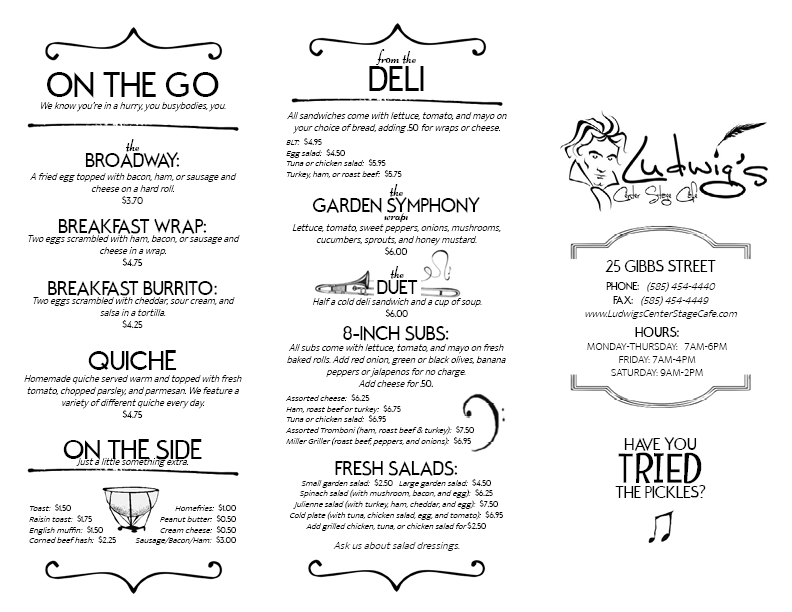 ON THE GO
We know you're in a hurry, you busybodies, you.
the
BROADWAY:
A fried egg topped with bacon, ham, or sausage and
cheese on a hard roll.
$3.70
BREAKFAST WRAP:
Two eggs scrambled with ham, bacon, or sausage and
cheese in a wrap.
$4.75
BREAKFAST BURRITO:
Two eggs scrambled with cheddar, sour cream, and
salsa in a tortilla.
$4.25
QUICHE
Homemade quiche served warm and topped with fresh
tomato, chopped parsley, and parmesan. We feature a
variety of different quiche every day.
$4.75
ON THE SIDE
Just a little something extra.
Toast: $1.50
Raisin toast: $1.75
English muffin: $1.50
Corned beef hash: $2.25
Homefries: $1.00
Peanut butter: $0.50
Cream cheese: $0.50
Sausage/Bacon/Ham: $3.00
from the
DELI
All sandwiches come with lettuce, tomato, and mayo on
your choice of bread, adding .50 for wraps or cheese.
BLT: $4.95
Egg salad: $4.50
Tuna or chicken salad: $5.95
Turkey, ham, or roast beef: $5.75
the
GARDEN SYMPHONY
wraps
Lettuce, tomato, sweet peppers, onions, mushrooms,
cucumbers, sprouts, and honey mustard.
$6.00
the
DUET
Half a cold deli sandwich and a cup of soup.
$6.00
8-INCH SUBS:
All subs come with lettuce, tomato, and mayo on fresh
baked rolls. Add red onion, green or black olives, banana
peppers or jalapenos for no charge.
Add cheese for .50.
Assorted cheese: $6.25
Ham, roast beef or turkey: $6.75
Tuna or chicken salad: $6.95
Assorted Tromboni (ham, roast beef & turkey): $7.50
Miller Griller (roast beef, peppers, and onions): $6.95
FRESH SALADS:
Small garden salad: $2.50 Large garden salad: $4.50
Spinach salad (with mushroom, bacon, and egg): $6.25
Julienne salad (with turkey, ham, cheddar, and egg): $7.50
Cold plate (with tuna, chicken salad, egg, and tomato): $6.95
Add grilled chicken, tuna, or chicken salad for $2.50
Ask us about salad dressings.
Ludwig's
Center Stage Cafe
25 GIBBS STREET
PHONE: (585) 454-4440
FAX: (585) 454-4449
www.LudwigsCenterStageCafe.com
HOURS:
MONDAY-THURSDAY: 7AM-6PM
FRIDAY: 7AM-4PM
SATURDAY: 9AM-2PM
HAVE YOU
TRIED
THE PICKLES?